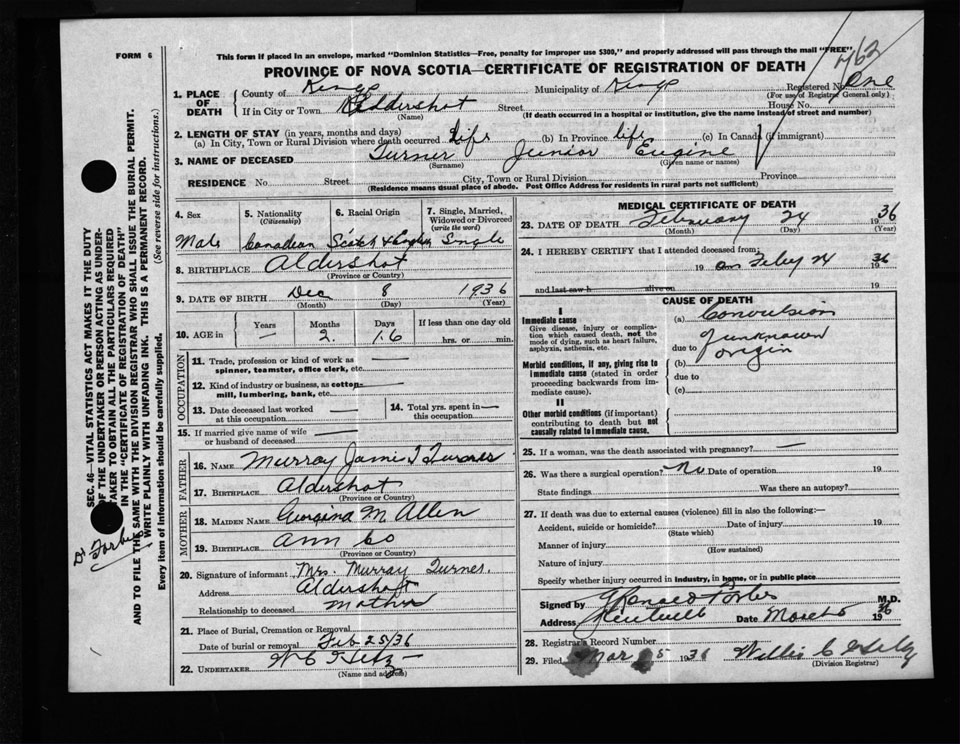 762
FORM 6
This form if placed in an envelope, marked "Dominion Statistics—Free, penalty for improper use $300," and properly addressed will pass through the mail "FREE".
PROVINCE OF NOVA SCOTIA—CERTIFICATE OF REGISTRATION OF DEATH
1. PLACE OF DEATH
County of Kings Municipality of Kings Registered No. One
(For use of Registrar General only)
If in City or Town Aldershot Street House No.
(Name) (If death occurred in a hospital or institution, give the name instead of street and number)
2. LENGTH OF STAY (in years, months and days)
(a) In City, Town or Rural Division where death occurred life (b) In Province life (c) In Canada (if immigrant)
3. NAME OF DECEASED Turner Junior Eugine
(Surname) (Given name or names)
RESIDENCE No. Street City, Town or Rural Division Province
(Residence means usual place of abode. Post Office Address for residents in rural parts not sufficient)
4. Sex 5. Nationality (Citizenship) 6. Racial Origin 7. Single, Married, Widowed or Divorced (write the word)
Male Canadian Scotch & English Single
8. BIRTHPLACE Aldershot
(Province or Country)
9. DATE OF BIRTH Dec 8 1936
(Month) (Day) (Year)
10. AGE in Years Months Days If less than one day old
— 2 16 hrs. or min.
OCCUPATION
11. Trade, profession or kind of work as spinner, teamster, office clerk, etc. —
12. Kind of industry or business, as cotton-mill, lumbering, bank, etc. —
13. Date deceased last worked at this occupation —
14. Total yrs. spent in this occupation —
15. If married give name of wife or husband of deceased —
FATHER
16. NAME Murray Turner
17. BIRTHPLACE Aldershot
(Province or Country)
MOTHER
18. MAIDEN NAME Georgina M Allen
19. BIRTHPLACE Ann Co
(Province or Country)
20. Signature of informant Mrs. Murray Turner.
Address Aldershot
Relationship to deceased Mother
21. Place of Burial, Cremation or Removal
Date of burial or removal Feb 25/36
22. UNDERTAKER
(Name and address)
MEDICAL CERTIFICATE OF DEATH
23. DATE OF DEATH February 24 1936
(Month) (Day) (Year)
24. I HEREBY CERTIFY that I attended deceased from:
19 on Feby 24 1936
and last saw h alive on 19
CAUSE OF DEATH
I
Immediate cause
Give disease, injury or complication which caused death, not the mode of dying, such as heart failure, asphyxia, asthenia, etc.
(a) Convulsion
due to unknown origin
Morbid conditions, if any, giving rise to immediate cause (stated in order proceeding backwards from immediate cause).
(b)
due to
(c)
II
Other morbid conditions (if important) contributing to death but not causally related to immediate cause.
25. If a woman, was the death associated with pregnancy? —
26. Was there a surgical operation? no Date of operation 19
State findings Was there an autopsy?
27. If death was due to external causes (violence) fill in also the following:—
Accident, suicide or homicide? Date of injury 19
(State which)
Manner of injury
(How sustained)
Nature of injury
Specify whether injury occurred in industry, in home, or in public place
Signed by Forbes M.D.
Address Kentville Date March 1936
28. Registrar's Record Number
29. Filed Mar 5 1936 Willis C
(Division Registrar)
SEC. 46—VITAL STATISTICS ACT MAKES IT THE DUTY
OF THE UNDERTAKER OR PERSON ACTING AS UNDER-
TAKER TO OBTAIN ALL THE PARTICULARS REQUIRED
IN THE "CERTIFICATE OF REGISTRATION OF DEATH"
AND TO FILE THE SAME WITH THE DIVISION REGISTRAR WHO SHALL ISSUE THE BURIAL PERMIT.
WRITE PLAINLY WITH UNFADING INK. THIS IS A PERMANENT RECORD.
Every item of information should be carefully supplied. (See reverse side for instructions.)
Dr Forbes